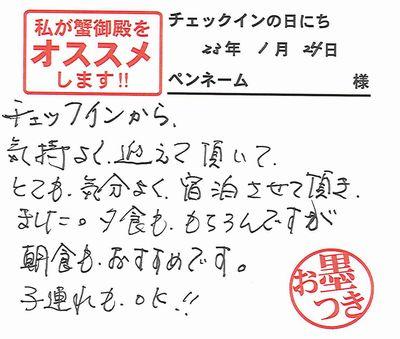 私が蟹御殿を
オススメ
します!!
チェックインの日にち
23年 1月 24日
ペンネーム 様
チェックインから、
気持よく、迎えて頂いて、
とても、気分よく、宿泊させて頂き、
ました。夕食も、もちろんですが
朝食も、おすすめです。
子連れも、OK!!
お墨つき